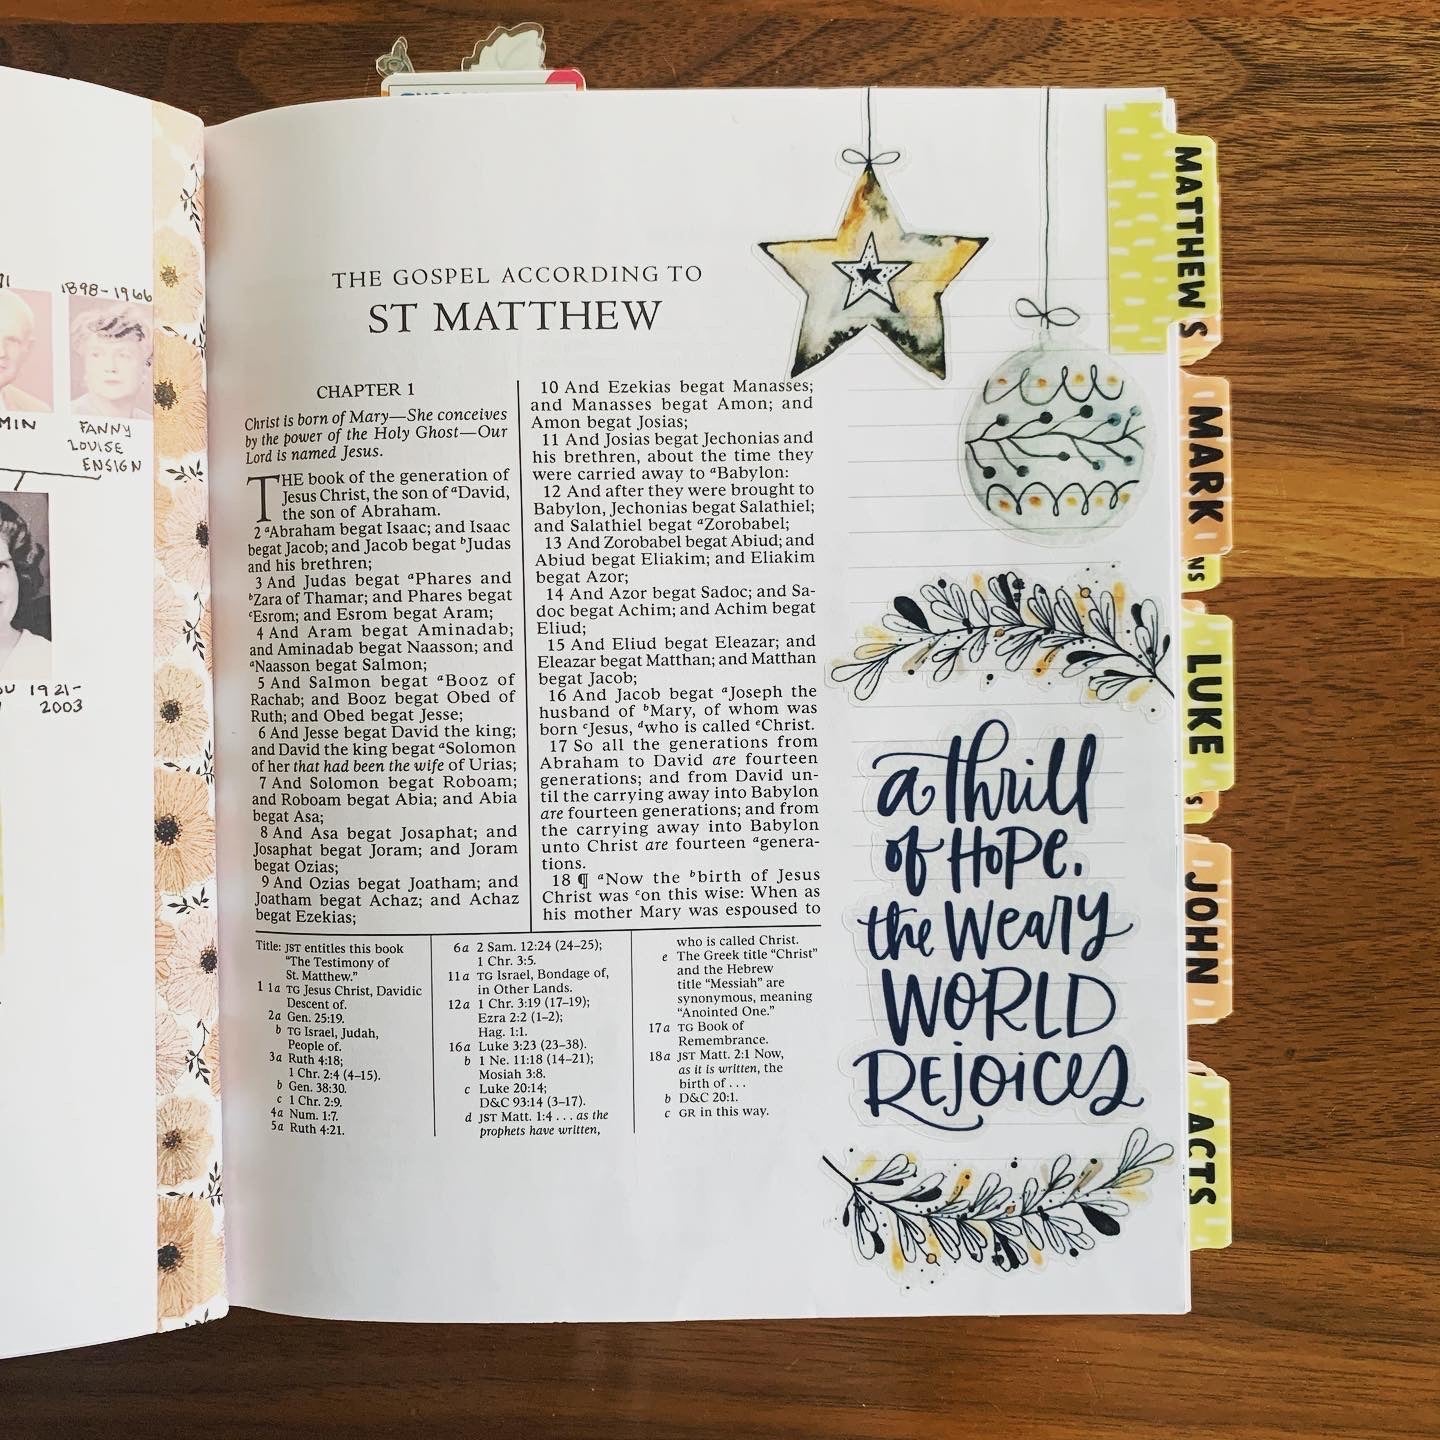 1898-1966
MIN
FANNY
LOUISE
ENSIGN
1921-
2003
THE GOSPEL ACCORDING TO
ST MATTHEW
CHAPTER 1
Christ is born of Mary—She conceives
by the power of the Holy Ghost—Our
Lord is named Jesus.
THE book of the generation of
Jesus Christ, the son of aDavid,
the son of Abraham.
2 aAbraham begat Isaac; and Isaac
begat Jacob; and Jacob begat bJudas
and his brethren;
3 And Judas begat aPhares and
bZara of Thamar; and Phares begat
cEsrom; and Esrom begat Aram;
4 And Aram begat Aminadab;
and Aminadab begat Naasson; and
aNaasson begat Salmon;
5 And Salmon begat aBooz of
Rachab; and Booz begat Obed of
Ruth; and Obed begat Jesse;
6 And Jesse begat David the king;
and David the king begat aSolomon
of her that had been the wife of Urias;
7 And Solomon begat Roboam;
and Roboam begat Abia; and Abia
begat Asa;
8 And Asa begat Josaphat; and
Josaphat begat Joram; and Joram
begat Ozias;
9 And Ozias begat Joatham; and
Joatham begat Achaz; and Achaz
begat Ezekias;
10 And Ezekias begat Manasses;
and Manasses begat Amon; and
Amon begat Josias;
11 And Josias begat Jechonias and
his brethren, about the time they
were carried away to aBabylon:
12 And after they were brought to
Babylon, Jechonias begat Salathiel;
and Salathiel begat aZorobabel;
13 And Zorobabel begat Abiud; and
Abiud begat Eliakim; and Eliakim
begat Azor;
14 And Azor begat Sadoc; and Sa-
doc begat Achim; and Achim begat
Eliud;
15 And Eliud begat Eleazar; and
Eleazar begat Matthan; and Matthan
begat Jacob;
16 And Jacob begat aJoseph the
husband of bMary, of whom was
born cJesus, dwho is called eChrist.
17 So all the generations from
Abraham to David are fourteen
generations; and from David un-
til the carrying away into Babylon
are fourteen generations; and from
the carrying away into Babylon
unto Christ are fourteen agenera-
tions.
18 ¶ aNow the bbirth of Jesus
Christ was con this wise: When as
his mother Mary was espoused to
Title: JST entitles this book
"The Testimony of
St. Matthew."
1 1a TG Jesus Christ, Davidic
Descent of.
2a Gen. 25:19.
b TG Israel, Judah,
People of.
3a Ruth 4:18;
1 Chr. 2:4 (4–15).
b Gen. 38:30.
c 1 Chr. 2:9.
4a Num. 1:7.
5a Ruth 4:21.
6a 2 Sam. 12:24 (24–25);
1 Chr. 3:5.
11a TG Israel, Bondage of,
in Other Lands.
12a 1 Chr. 3:19 (17–19);
Ezra 2:2 (1–2);
Hag. 1:1.
16a Luke 3:23 (23–38).
b 1 Ne. 11:18 (14–21);
Mosiah 3:8.
c Luke 20:14;
D&C 93:14 (3–17).
d JST Matt. 1:4 . . . as the
prophets have written,
who is called Christ.
e The Greek title "Christ"
and the Hebrew
title "Messiah" are
synonymous, meaning
"Anointed One."
17a TG Book of
Remembrance.
18a JST Matt. 2:1 Now,
as it is written, the
birth of . . .
b D&C 20:1.
c GR in this way.
a thrill
of HoPe.
the Weary
WORLD
REjoices
MATTHEW
S
MARK
NS
LUKE
S
JOHN
ACTS